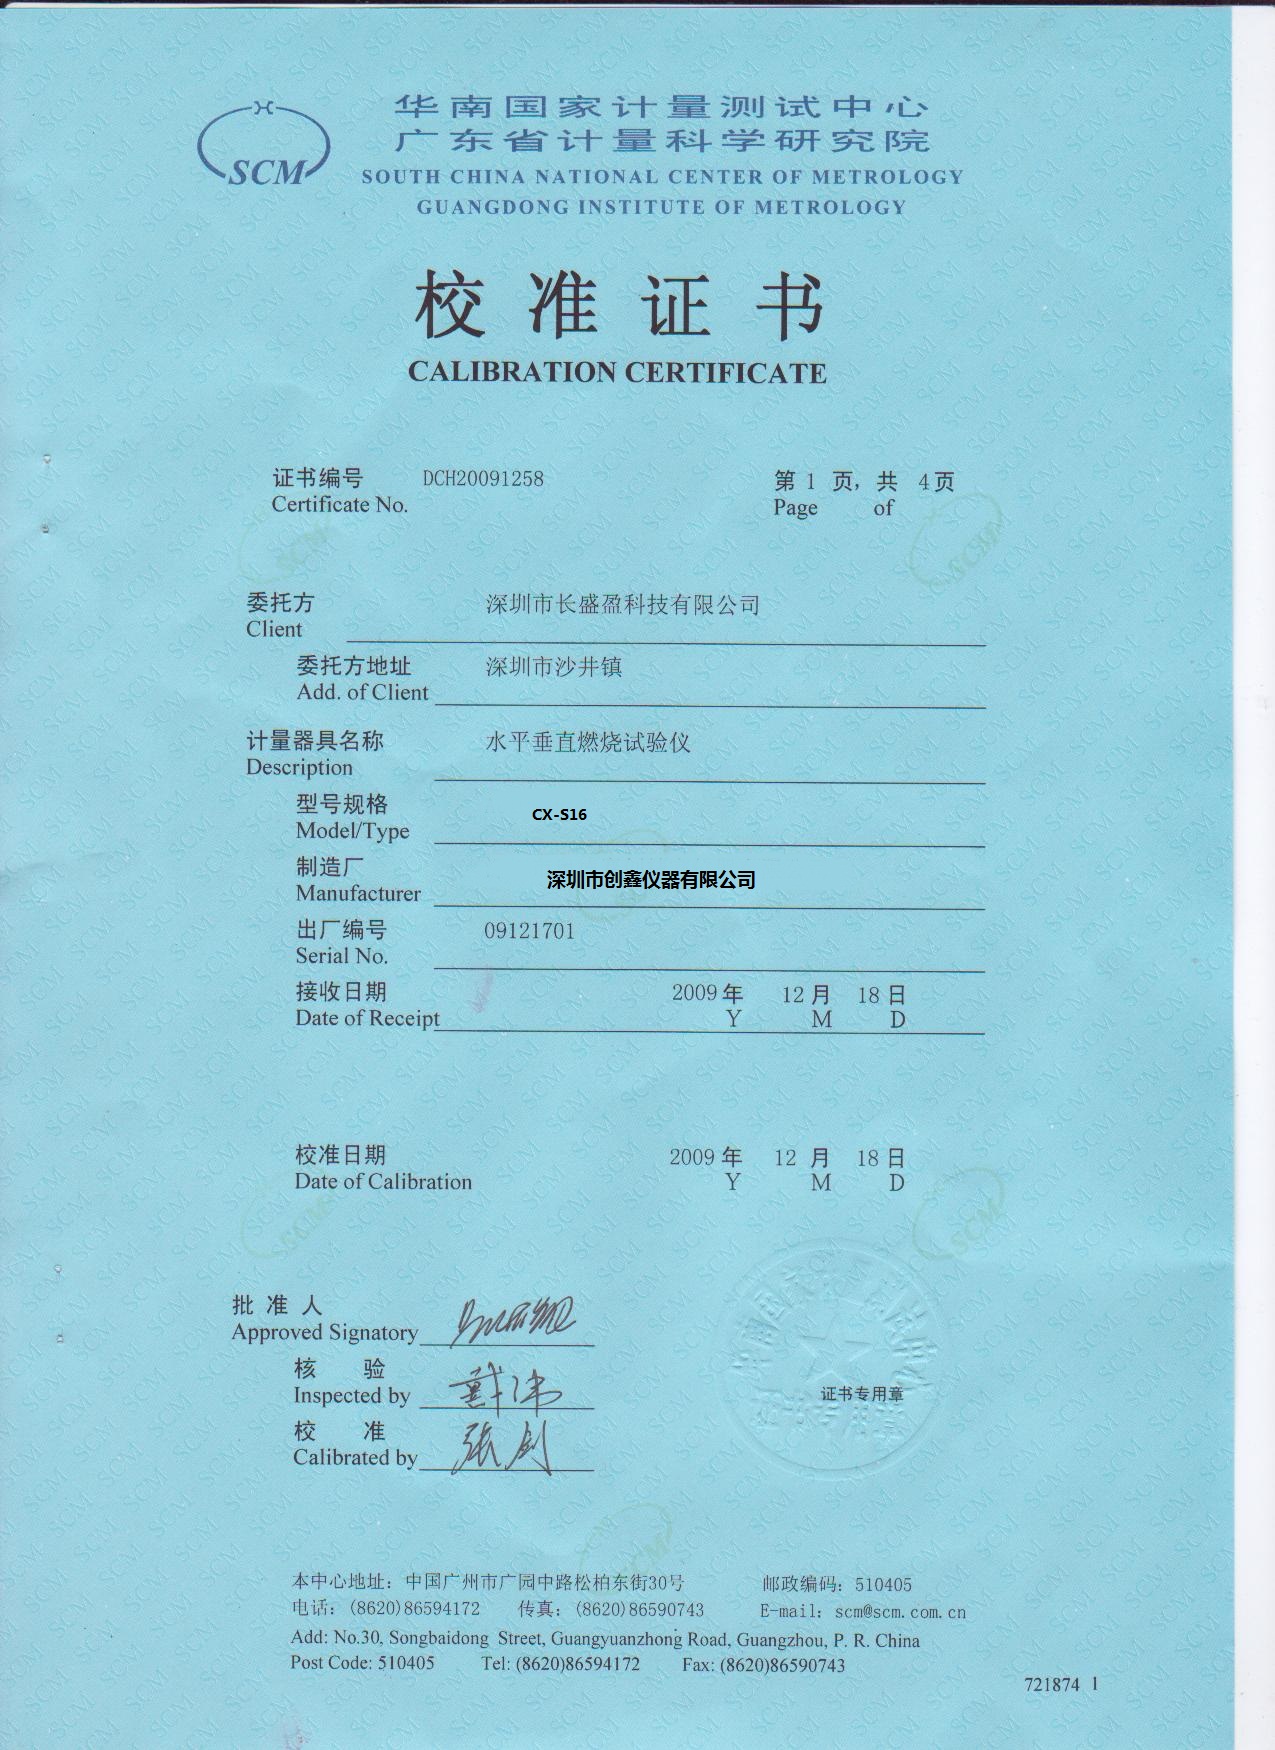 华南国家计量测试中心
广东省计量科学研究院
SCM
SOUTH CHINA NATIONAL CENTER OF METROLOGY
GUANGDONG INSTITUTE OF METROLOGY
校准证书
CALIBRATION CERTIFICATE
证书编号 DCH20091258 第 1 页, 共 4页
Certificate No. Page of
委托方 深圳市长盛盈科技有限公司
Client
委托方地址 深圳市沙井镇
Add. of Client
计量器具名称 水平垂直燃烧试验仪
Description
型号规格 CX-S16
Model/Type
制造厂 深圳市创鑫仪器有限公司
Manufacturer
出厂编号 09121701
Serial No.
接收日期 2009年 12月 18日
Date of Receipt Y M D
校准日期 2009年 12月 18日
Date of Calibration Y M D
批准人
Approved Signatory
核验 戴伟
Inspected by
证书专用章
校准 张剑
Calibrated by
本中心地址: 中国广州市广园中路松柏东街30号 邮政编码: 510405
电话: (8620)86594172 传真: (8620)86590743 E-mail: scm@scm.com.cn
Add: No.30, Songbaidong Street, Guangyuanzhong Road, Guangzhou, P. R. China
Post Code: 510405 Tel: (8620)86594172 Fax: (8620)86590743
721874 1